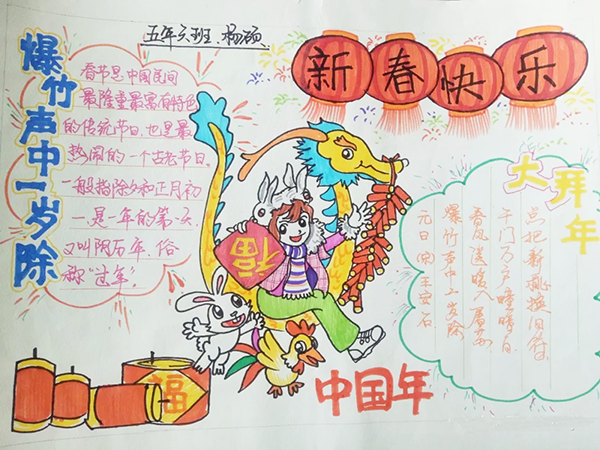 五年六班. 杨硕
爆竹声中一岁除
新春快乐
春节是中国民间
最隆重最富有特色
的传统节日.也是最
热闹的一个古老节日.
一般指除夕和正月初
一.是一年的第一天
又叫阴历年.俗
称"过年".
福
大拜年
元日(宋)王安石
爆竹声中一岁除
春风送暖入屠苏
千门万户曈曈日
总把新桃换旧符.
福
中国年